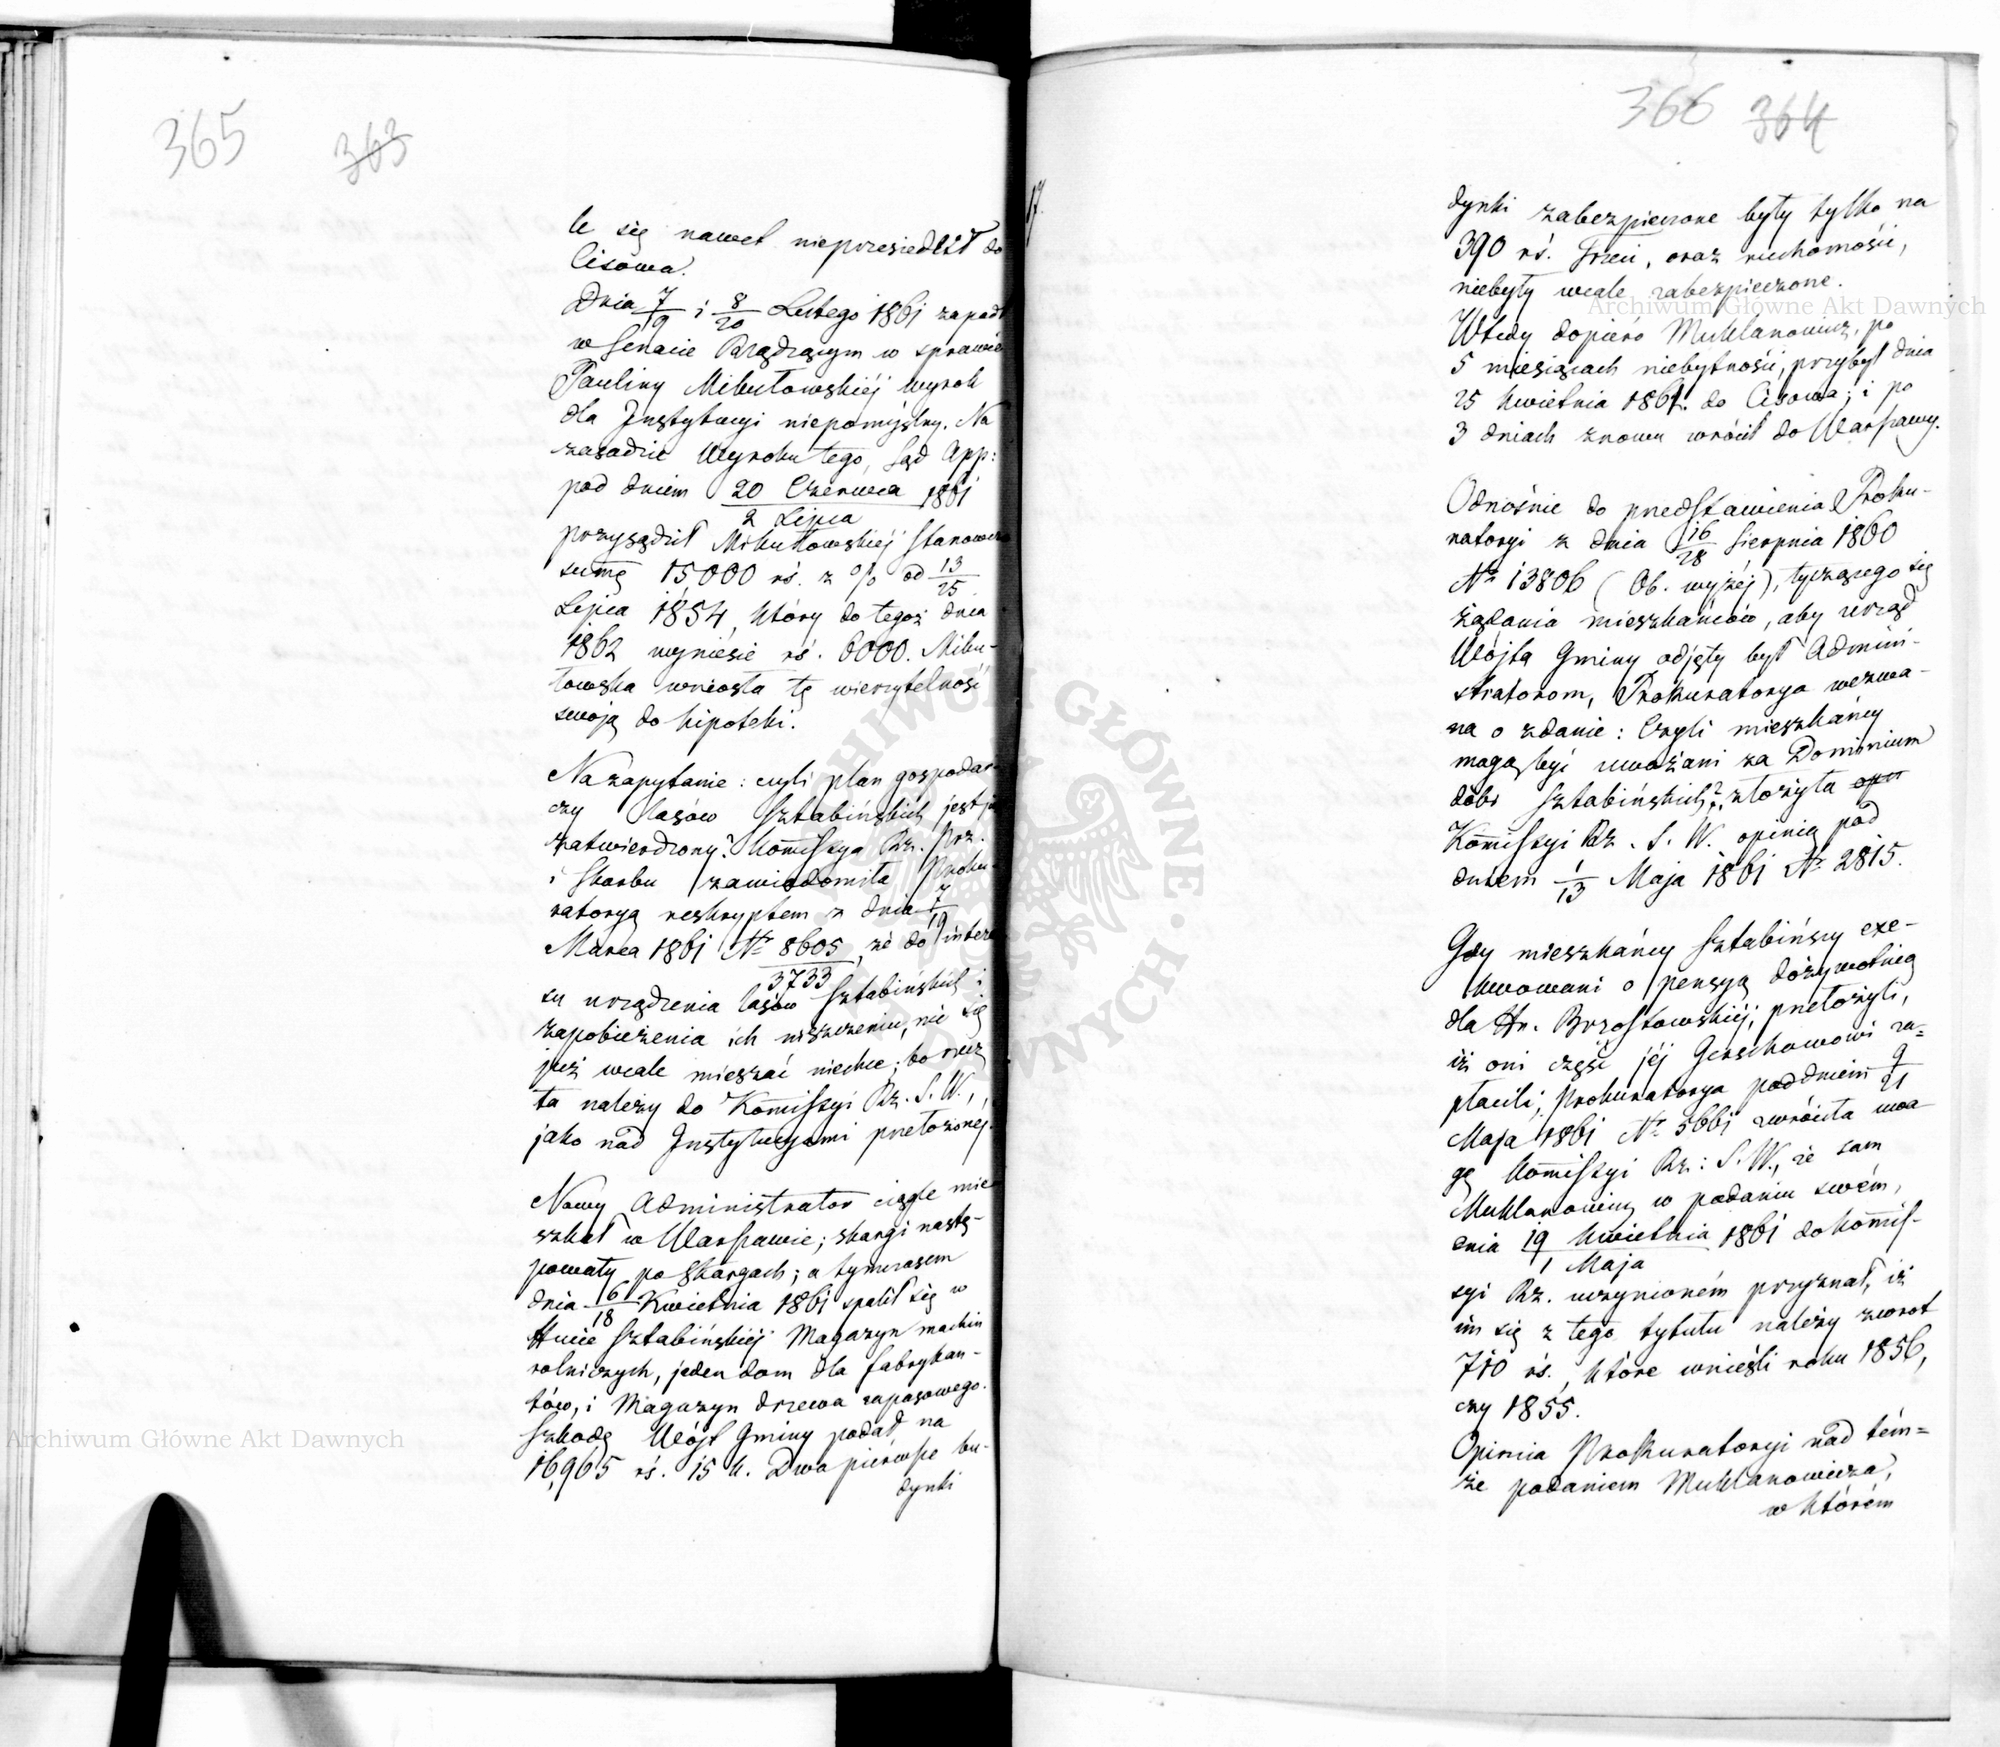 365 363
le się nawet nieprzesiedlił do
Cisowa.
Dnia 7/19 i 8/20 Lutego 1861 zapadł
w Senacie Rządzącym w sprawie
Pauliny Mikułowskiéj wyrok
dla Instytucyi niepomyślny. Na
zasadzie Wyroku tego, Sąd App:
pod dniem 20 Czerwca/2 Lipca 1861
przysądził Mikułowskiéj stanowczo
sumę 15,000 rś. z % od 13/25
Lipca 1854, który do tegoż dnia
1862 wyniesie rś. 6000. Miku-
łowska wniosła tę wierzytelność
swoją do hipoteki.
Na zapytanie: czyli plan gospodar-
czy lasów Sztabińskich jest
zatwierdzony? Kommissya Rz. Prz.
i Skarbu zawiadomiła Proku-
ratoryą reskryptem z dnia 7/19
Marca 1861 Nr 8605/3733, że do intere
su urządzenia lasów Sztabińskich i
zapobieżenia ich niszczeniu, nie się
już wcale mieszać niechce; bo rzecz
ta należy do Kommissyi Rz. S. W.,
jako nad Instytucyami przełożonej.
Nowy Administrator ciągle mie
szkał w Warszawie; skargi nastę-
powały po skargach; a tymczasem
dnia 6/18 Kwietnia 1861 spalił się w
Hucie Sztabińskiéj Magazyn machin
rolniczych, jeden dom dla fabrykan-
tów, i Magazyn drzewa zapasowego.
Szkodę Wójt Gminy podał na
16,965 rś. 15 k. Dwa piérwsze bu-
dynki
366 364
dynki zabezpieczone były tylko na
390 rś. Trzeci, oraz ruchomości,
niebyły wcale zabezpieczone.
Wtedy dopiéro Muklanowicz, po
5 miesiącach niebytności, przybył dnia
25 Kwietnia 1861. do Cisowa; i po
3 dniach znowu wrócił do Warszawy.
Odnośnie do przedstawienia Proku-
ratoryi z dnia 16/28 Sierpnia 1860
Nr 13806 (Ob. wyżéj), tyczącego się
żądania mieszkańców, aby urząd
Wójta Gminy odjęty był Admini-
stratorom, Prokuratorya wezwa-
na o zdanie: Czyli mieszkańcy
mogą być uważani za Dominium
dóbr Sztabińskich?, złożyła opn
Kommissyi Rz. S. W. opinią pod
dniem 1/13 Maja 1861 Nr 2815.
Gdy mieszkańcy Sztabińscy exe-
kwowani o pensyą dożywotnią
dla Hr. Brzostowskiéj, przełożyli,
iż oni część jéj Gerschowowi za=
płacili; Prokuratorya pod dniem 9/21
Maja 1861 Nr 5661 zwróciła uwa-
gę Kommissyi Rz: S. W., że sam
Muklanowicz w podaniu swém,
dnia 19 Kwietnia/1 Maja 1861 do Kommis-
syi Rz. uczynioném przyznał, iż
im się z tego tytułu należy zwrot
710 rś., które wnieśli roku 1856,
czy 1855.
Opinia Prokuratoryi nad tém=
że podaniem Muklanowicza,
w którém
Archiwum Główne Akt Dawnych
Archiwum Główne Akt Dawnych